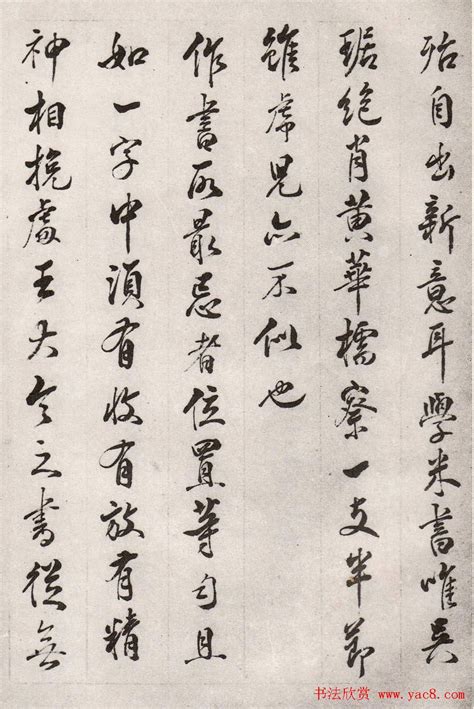 殆自出新意耳學米書唯吳
琚絕肖黃華樗寮一支半節
雖虎兒亦不似也
作書所最忌者位置等勻且
如一字中須有收有放有精
神相挽處王大令之書從無
书法欣赏 www.yac8.com